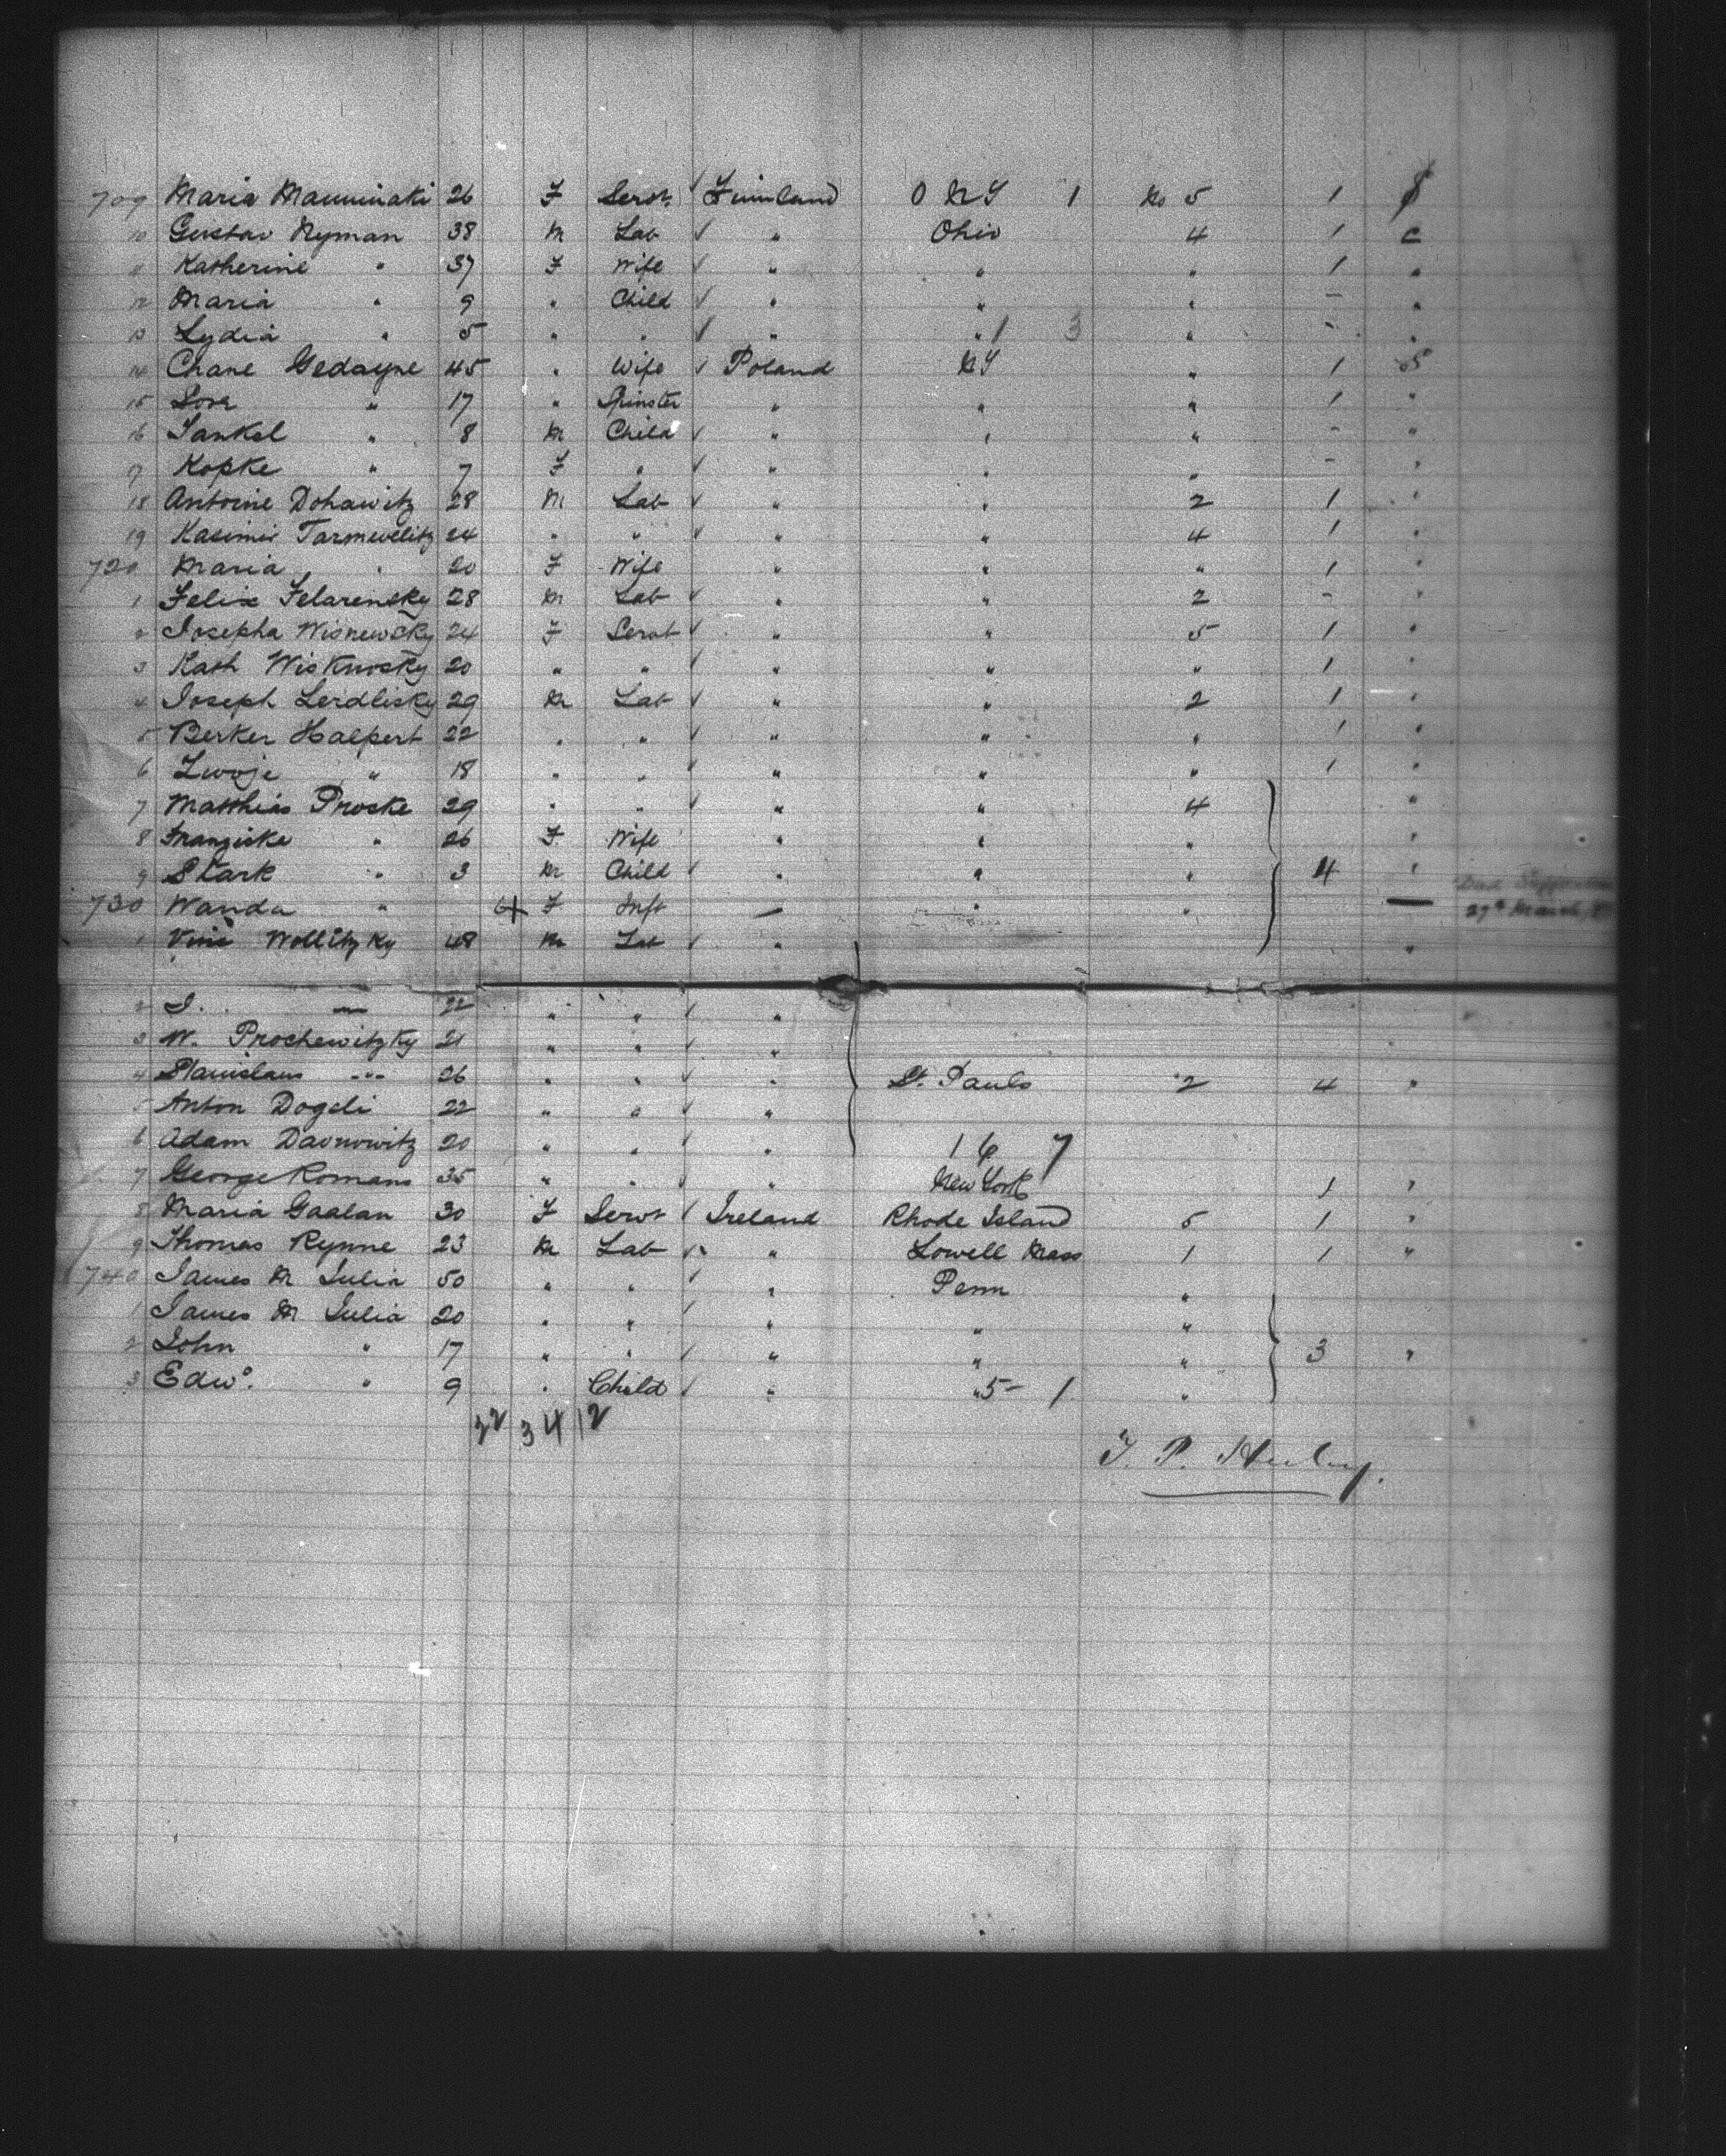 709 Maria Mauminaki 26 F Servt. ✓ Finnland O NY 1 No 5 1
10 Gustav Nyman 38 M Lab ✓ " Ohio 4 1 C
11 Katherine " 37 F Wife ✓ " " " 1 "
12 Maria " 9 " Child ✓ " " " - "
13 Lydia " 5 " " ✓ " " 1 3 " - "
14 Chane Gedayne 45 " Wife ✓ Poland NY " 1 S
15 " 17 " Spinster " " " 1 "
16 Jankel " 8 M Child ✓ " " " - "
17 Kopke " 7 F " ✓ " " " - "
18 Antoine Dohawitz 28 M Lab ✓ " " 2 1 "
19 Kasimir Tarmewelitz 24 " " ✓ " " 4 1 "
720 Maria " 20 F Wife " " " 1 "
1 Felix Felarensky 28 M Lab ✓ " " 2 - "
2 Josepha Wisnewsky 24 F Servt ✓ " " 5 1 "
3 Kath Wisknosky 20 " " ✓ " " " 1 "
4 Joseph Lerdlisky 29 M Lab ✓ " " 2 1 "
5 Berker Halpert 22 " " ✓ " " " 1 "
6 Zwoje " 18 " " ✓ " " " 1 "
7 Matthias Proske 29 " " ✓ " " 4 "
8 Franziske " 26 F Wife " " " "
9 Stark " 3 M Child ✓ " " " 4 "
730 Wanda " F Inft — " " — 27th March
1 Wollitzky 48 M Lab ✓ " "
2 J. — 22 " " ✓ " "
3 W. Prochewitzky 21 " " ✓ "
4 Stanislaus " 26 " " ✓ " St. Pauls 2 4 "
5 Anton Dogdi 22 " " ✓ "
6 Adam Davnowitz 20 " " ✓ " 1 6 7
7 George Romans 35 " " ✓ " New York 1 "
8 Maria Gaalan 30 F Servt ✓ Ireland Rhode Island 5 1 "
9 Thomas Rynne 23 M Lab ✓ " Lowell Mass 1 1 "
740 James M Julia 50 " " ✓ " Penn "
1 James M Julia 20 " " ✓ " " "
2 John " 17 " " ✓ " " " 3 "
3 Edwd. " 9 " Child ✓ " " 5 - 1 "
22 34 12